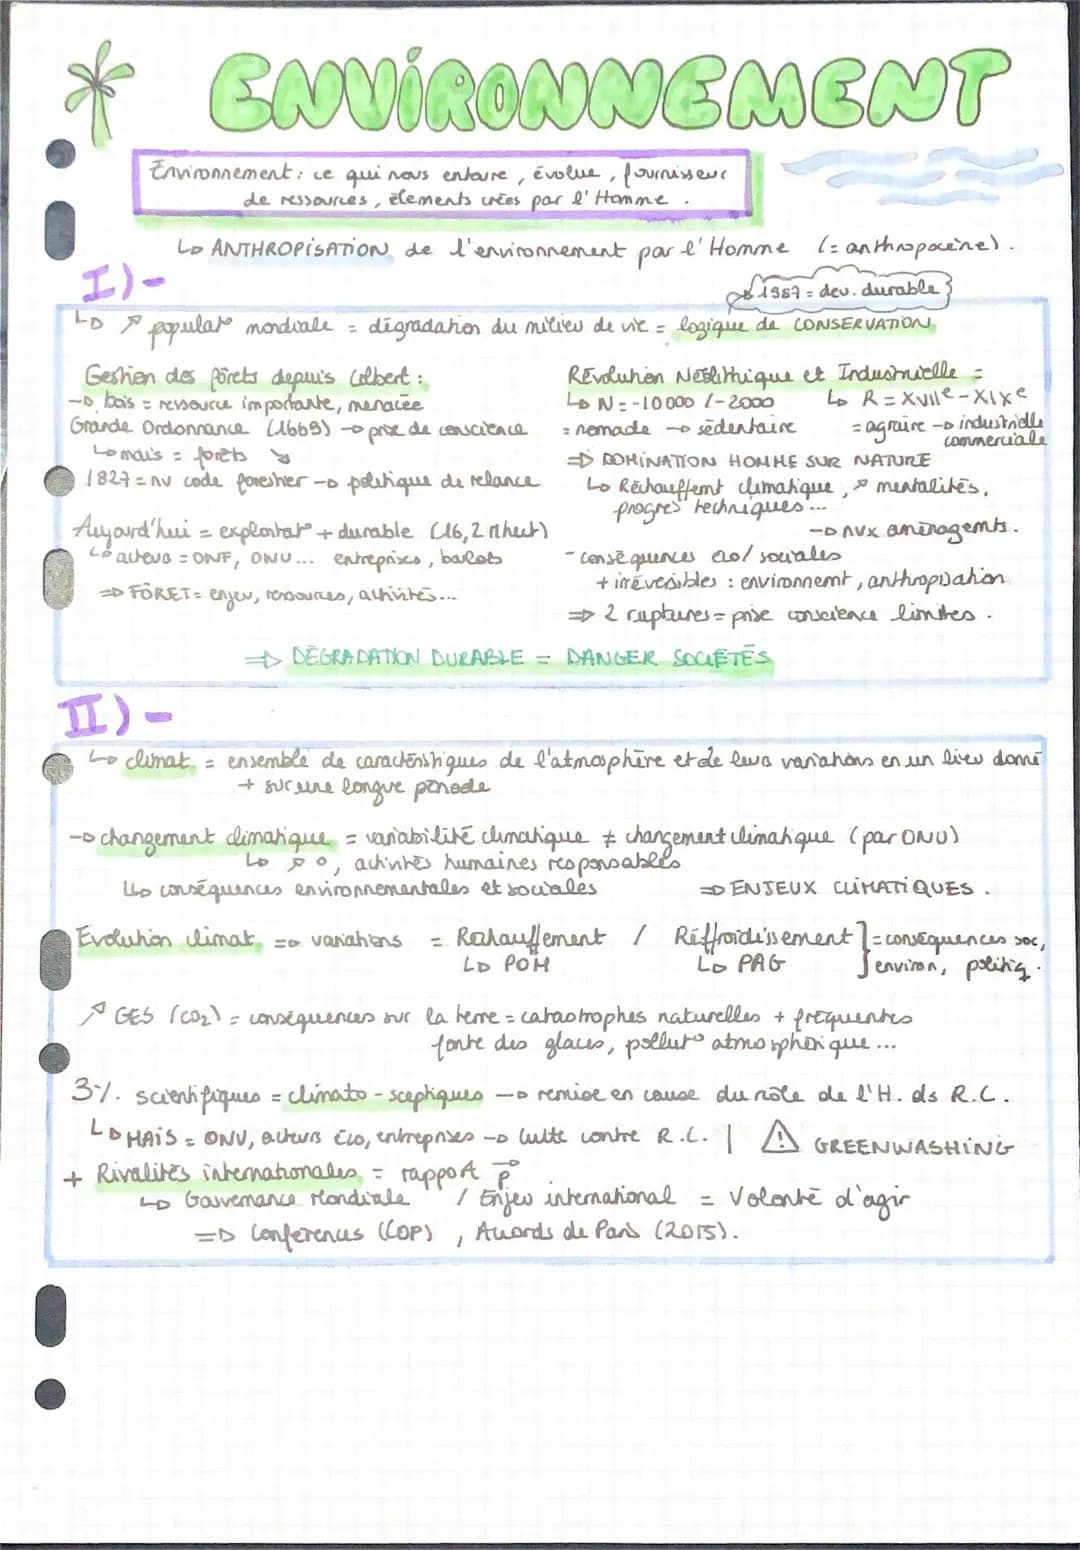 ENVIRONNEMENT
Environnement : ce qui nous entoure, évolue, fournisseur
de ressources, élements crées par l'Homme.
↳ ANTHROPISATION de l'environnement par l'Homme (= anthropocène).
I)-
1987 = dev. durable
↳ ↗ populat° mondiale = dégradation du milieu de vie = logique de CONSERVATION
Gestion des forêts depuis Colbert :
→ bois = ressource importante, menacée
Grande Ordonnance (1669) → prise de conscience
↳ mais = forêts ↘
1827 = nv code forestier → politique de relance
Aujourd'hui = exploitat° + durable (16,2 Mhect)
↳ acteurs = ONF, ONU... entreprises,
⇒ FÔRET = enjeu, ressources, activités...
Révolution Néolithique et Industrielle =
↳ N = -10000 / -2000 ↳ R = XVIIIe - XIXe
= nomade → sédentaire = agraire → industrielle
commerciale
⇒ DOMINATION HOMME SUR NATURE
↳ Réchauffemt climatique, ↗ mentalités,
progrès techniques...
→ nvx aménagemts.
- conséquences éco/sociales
+ irréversibles : environnemt, anthropisation
⇒ 2 ruptures = prise conscience limites.
⇒ DÉGRADATION DURABLE = DANGER SOCIÉTÉS
II)-
↳ climat = ensemble de caractéristiques de l'atmosphère et de leurs variations en un lieu donné
+ sur une longue période
→ changement climatique = variabilité climatique ≠ changement climatique (par ONU)
↳ ↗ °, activités humaines responsables
↳ conséquences environnementales et sociales ⇒ ENJEUX CLIMATIQUES.
Evolution climat ⇒ variations = Rechauffement / Réffroidissement ] = conséquences soc,
↳ POM ↳ PAG environ, politiq.
↗ GES (CO2) = conséquences sur la terre = catastrophes naturelles + fréquentes
fonte des glaces, pollut° atmosphérique...
3%. scientifiques = climato-sceptiques → remise en cause du rôle de l'H. ds R.C.
↳ MAIS = ONU, acteurs éco, entreprises → lutte contre R.C. | ⚠ GREENWASHING
+ Rivalités internationales = rapport p°
↳ Gouvernance Mondiale / Enjeu international = Volonté d'agir
⇒ Conférences (COP), Accords de Paris (2015).